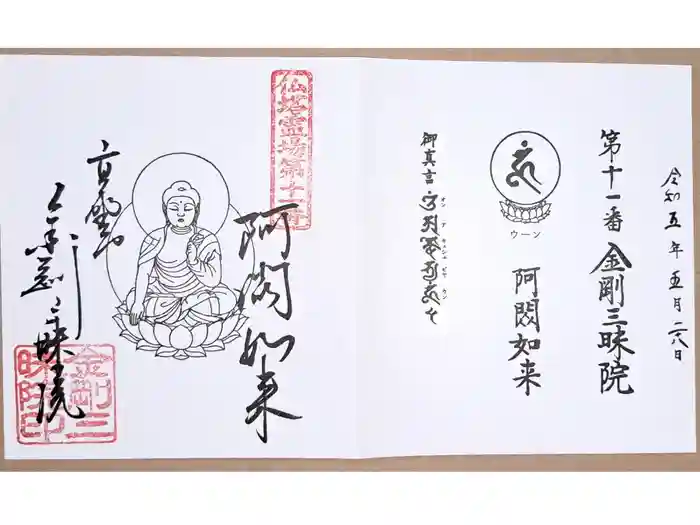 令和五年五月二八日
第十一番 金剛三昧院
ウーン
阿閦如来
御真言
オン アキシュビヤ ウン
仏塔霊場第十一番
阿閦如来
高野山
金剛三昧院
金剛三
昧院印